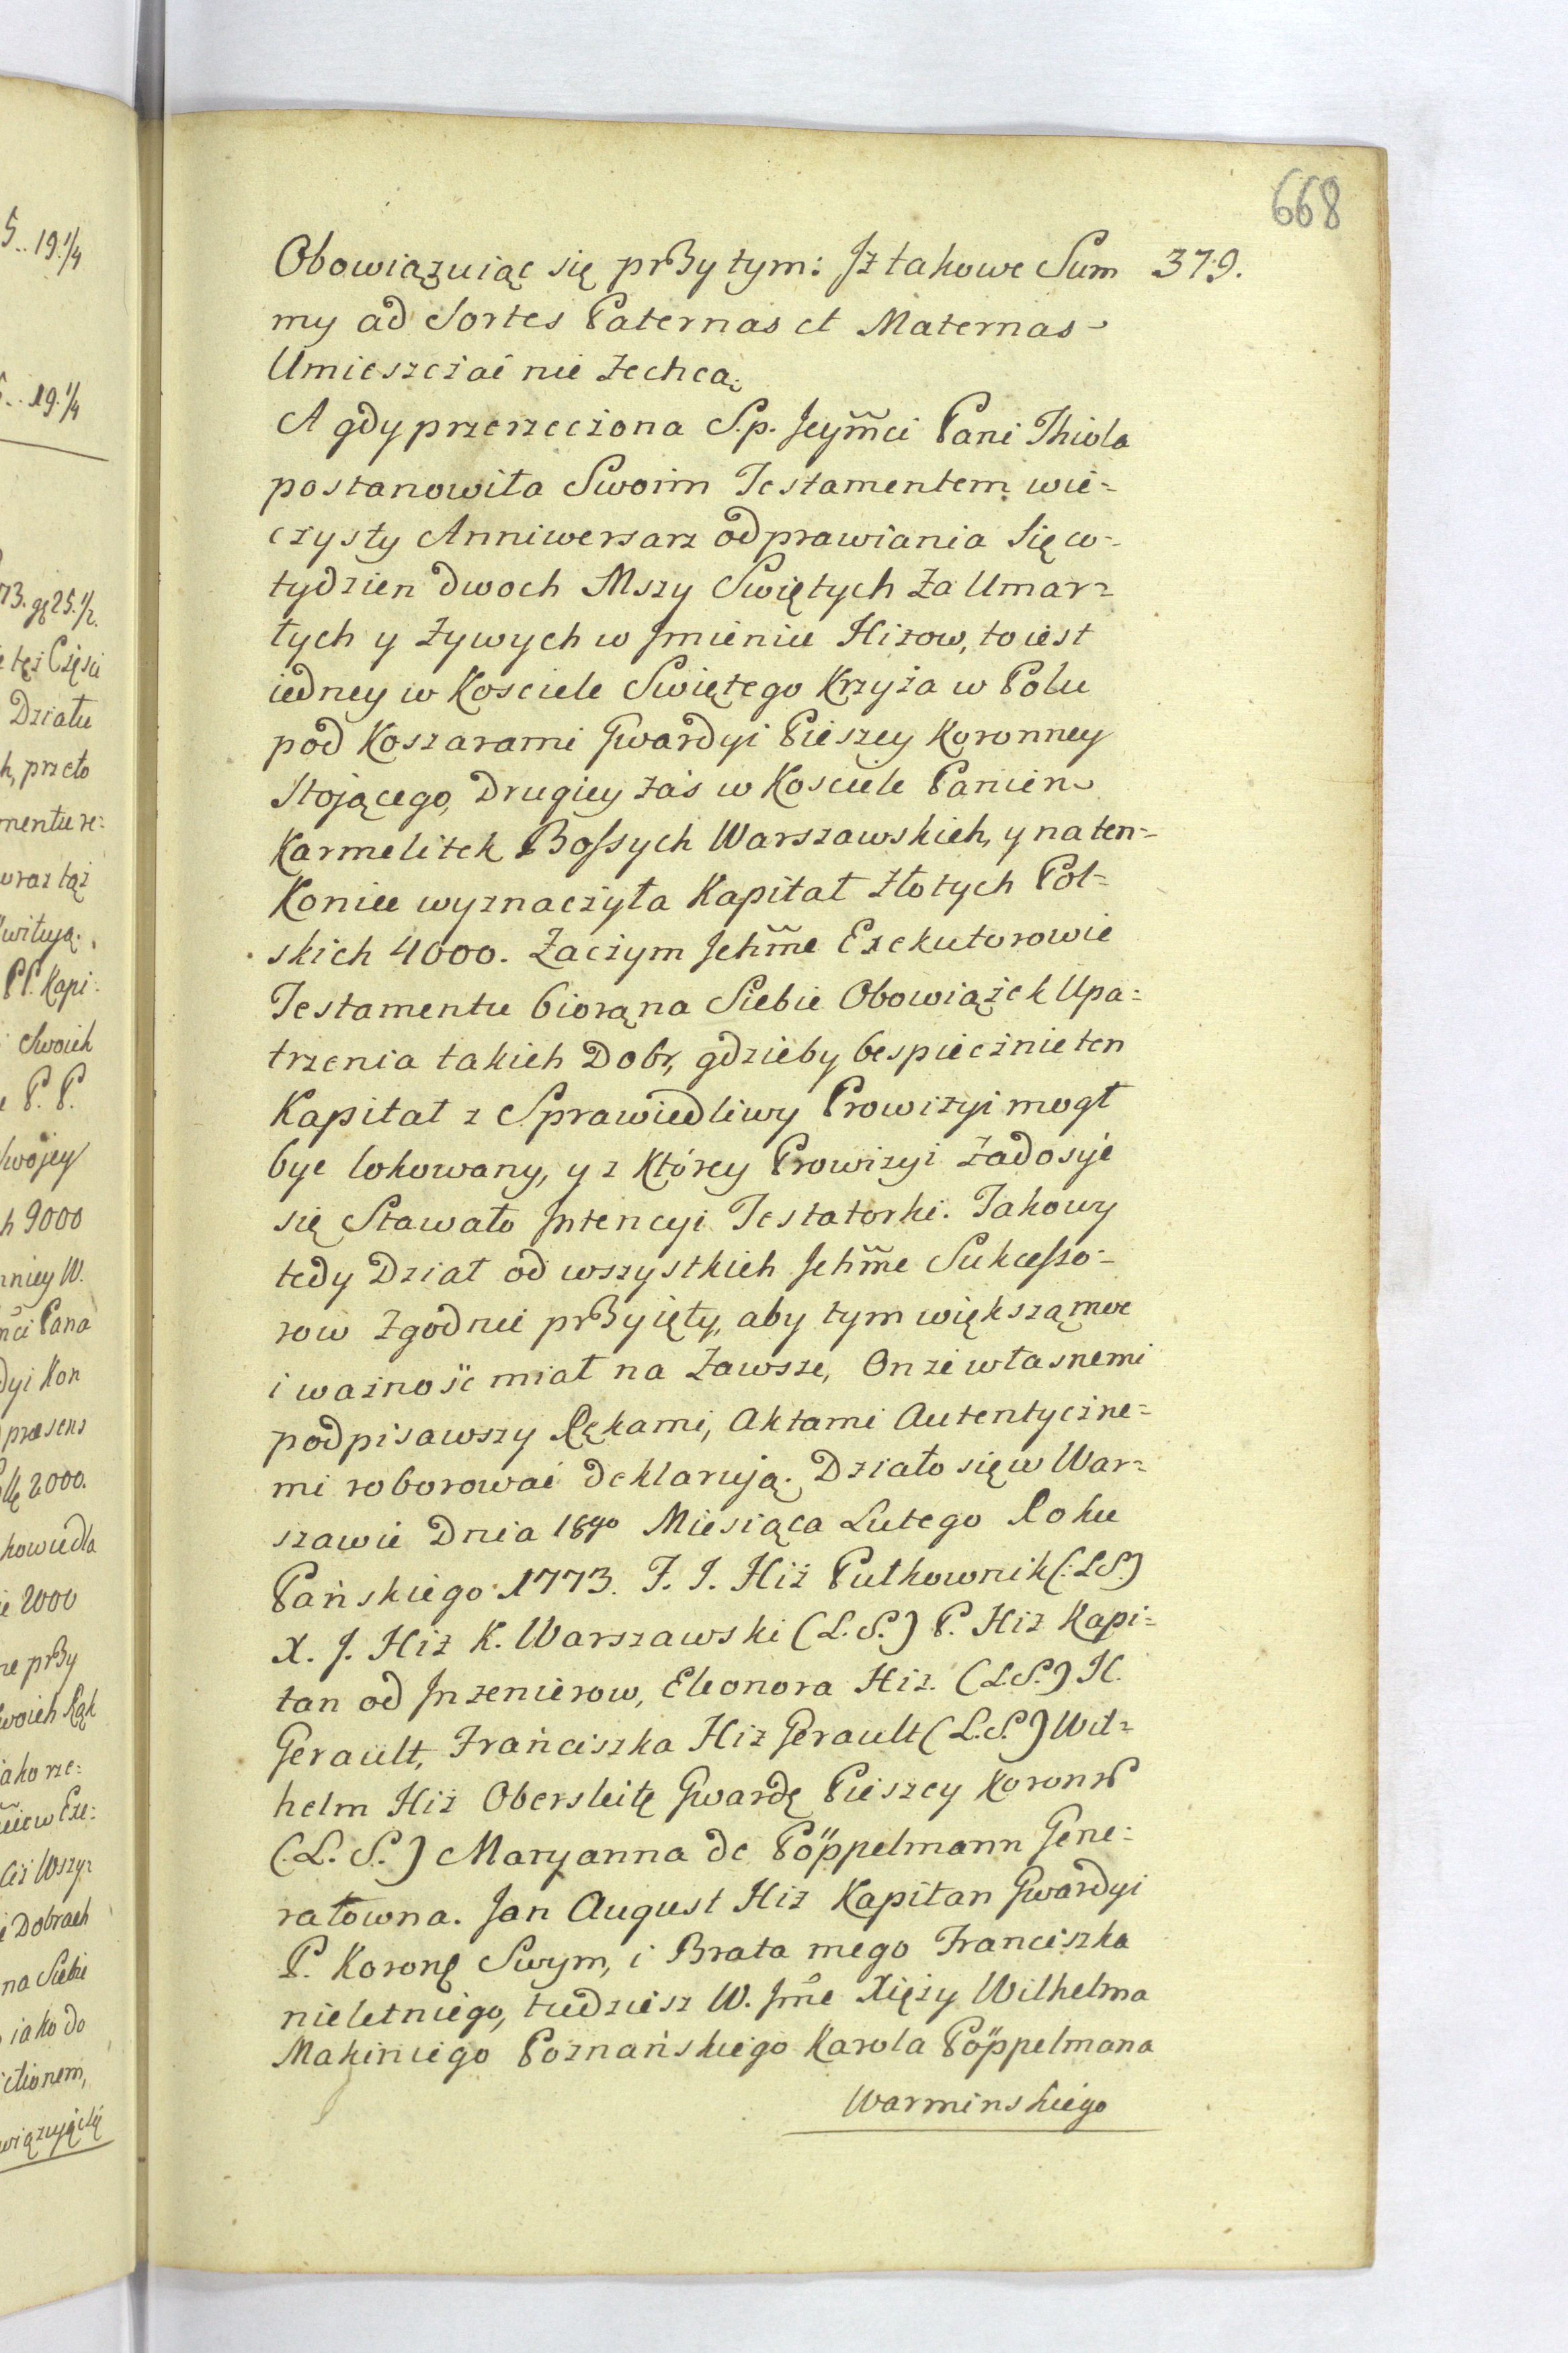 668
Obowiązuiąc się przy tym: Jż takowe Sum 379.
my ad Sortes Paternas et Maternas
Umieszczać nie zechcą.
A gdy przerzeczona S.p. Jeymci Pani Thiola
postanowiła Swoim Testamentem wie=
czysty Anniwersarz odprawiania się co=
tydzien dwoch Mszy Swiętych za Umar=
łych y Zywych w Jmieniu Hizow, to iest
iedney w Kosciele Swiętego Krzyża w Polu
pod Koszarami Gwardyi Pieszey Koronney
Stojącego, Drugiey zaś w Kosciele Panien
Karmelitek Bossych Warszawskich, y na ten=
Koniec wyznaczyła Kapitał Złotych Pol=
skich 4000. Zaczym Jchmc Exekutorowie
Testamentu biorą na Siebie Obowiązek Upa=
trzenia takich Dobr, gdzieby bespiecznie ten
Kapitał z Sprawiedliwy Prowizyi mogł
byc lokowany, y z Którey Prowizyi zadosyć
się Stawało Jntencyi Testatorki. Takowy
tedy Dział od wszystkich Jchmc Sukcesso=
row Zgodnie przyięty, aby tym większą moc
i ważność miał na Zawsze, Onże własnemi
podpisawszy Rękami, Aktami Autentyczne=
mi roborować deklarują. Działo się w War=
szawie Dnia 18go Miesiąca Lutego Roku
Pańskiego 1773. F. J. Hiż Pułkownik (:L.S.)
X. J. Hiż K. Warszawski (L.S.) P. Hiż Kapi=
tan od Jnzenierow, Eleonora Hiż. (L.S.) H.
Gerault, Franciszka Hiż Gerault (L.S.) Wil=
helm Hiż Obersleitę Gwardę Pieszey Koronn
(.L.S.) Maryanna de Pöppelmann Gene=
rałowna. Jan August Hiż Kapitan Gwardyi
P. Koronę Swym, i Brata mego Franciszka
nieletniego, tudziesz W. Jmc Xięży Wilhelma
Makiniego Poznańskiego Karola Pöppelmana
Warminskiego
5.. 19.1/4
19.1/4
73. gę 25.1/2.
też Częsci
Działu
h, przeto
mentu re:
wraz tąż
witują.
PP. Kapi:
Swoich
P. P.
Swojey
h 9000
niey W.
mci Pana
dyi Kon
præsens
2000.
kowiedla
2000
przy
woich Rąk
iako rze:
w Exe:
Wszy
Dobrach
na Siebie
iako do
ctionem,
wiązując się